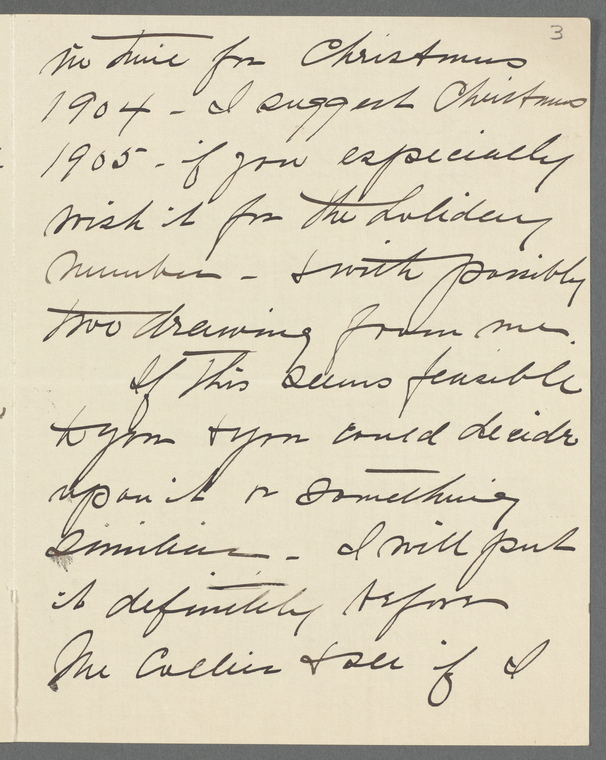 3
in time for Christmas
1904 - I suggest Christmas
1905 - if you especially
wish it for the holiday
number - & with possibly
two drawing from me.
If this seems feasible
to you & you could decide
upon it or something
similar - I will put
it definitely before
Mr Collier & see if I